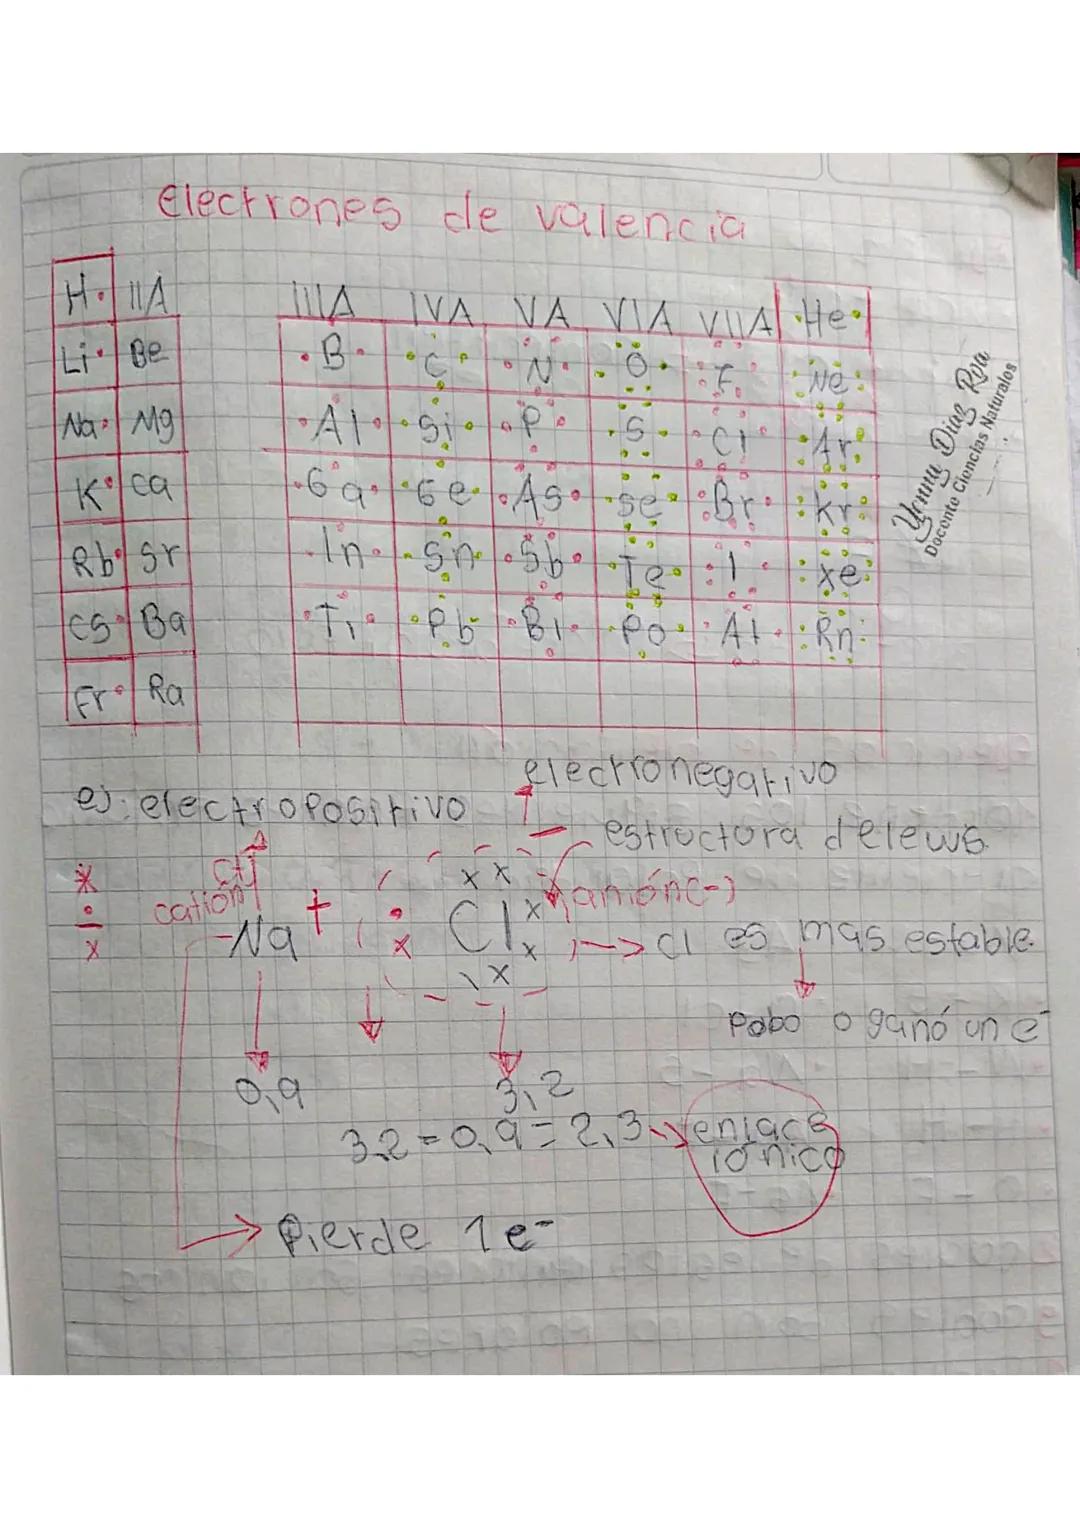 Electrones de valencia
H· IIA IIIA IVA VA VIA VIIA He
Li Be B C N O F Ne
Na Mg Al Si P S Cl Ar
K ca Ga Ge As Se Br Kr
Rb Sr In Sn Sb Te I Xe
Cs Ba Ti Pb Bi Po At Rn
Fr Ra
Yenny Diaz Rua
Docente Ciencias Naturales
electronegativo
ej: electropositivo
estructura delewis
(+)
catión
anión(-)
Na + Cl → cl es mas estable.
Robo o ganó un e-
0,9 3,2
3,2 - 0,9 = 2,3 → enlace
iónico
→ Pierde 1 e-